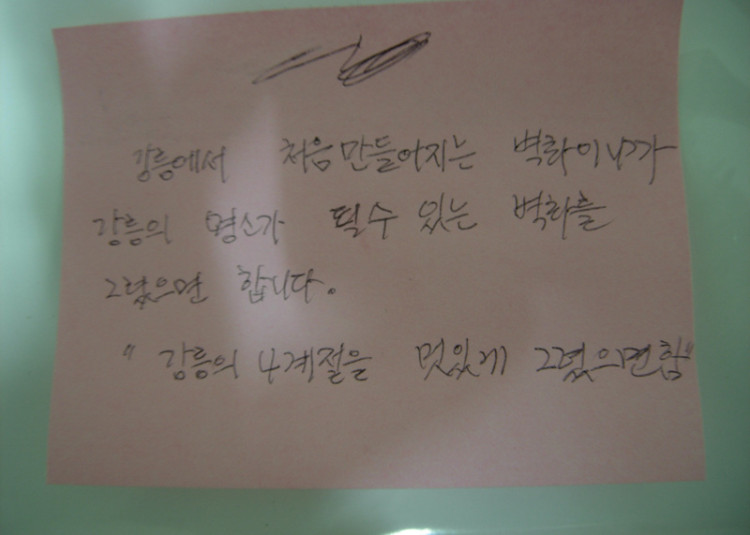 강릉에서 처음 만들어지는 벽화이니가
강릉의 명소가 될수 있는 벽화를
그렸으면 합니다.
" 강릉의 4계절을 멋있게 그렸으면함"